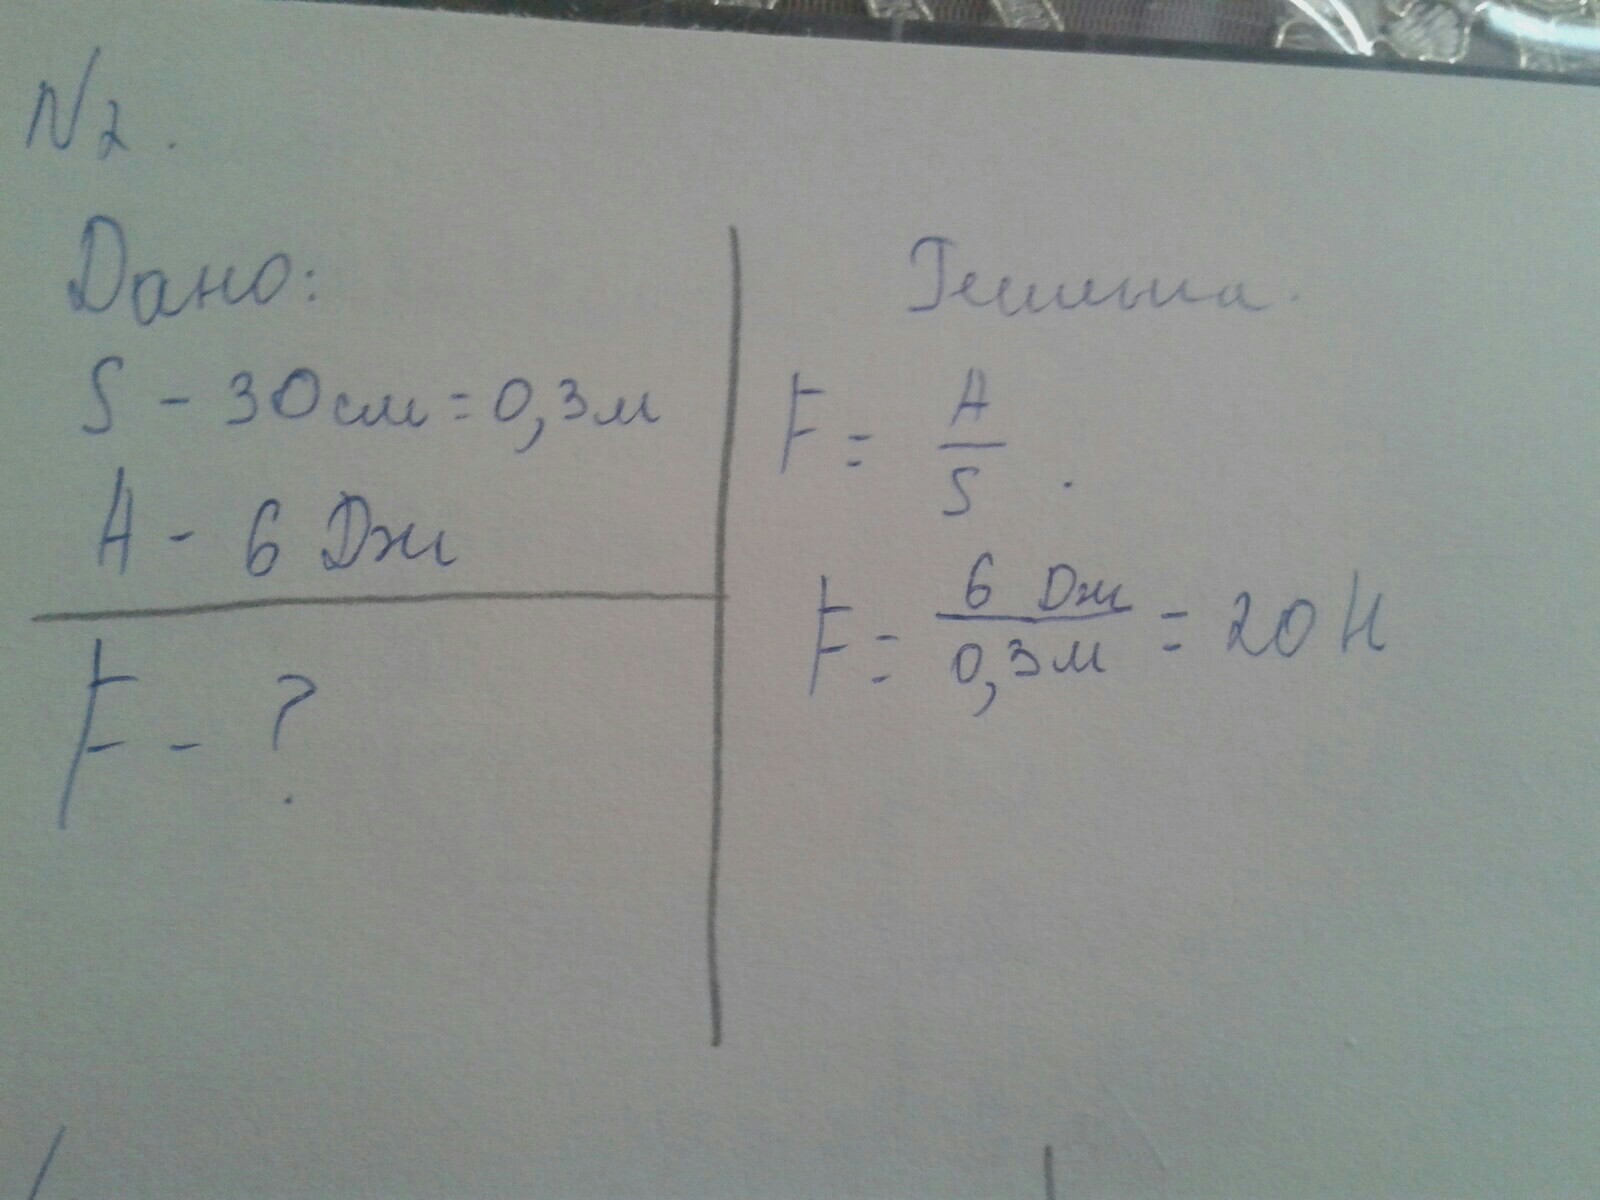 N2.
Дано:
S - 30 см = 0,3 м
A - 6 Дж
F - ?
F = A/S.
F = 6 Дж/0,3 м = 20 Н